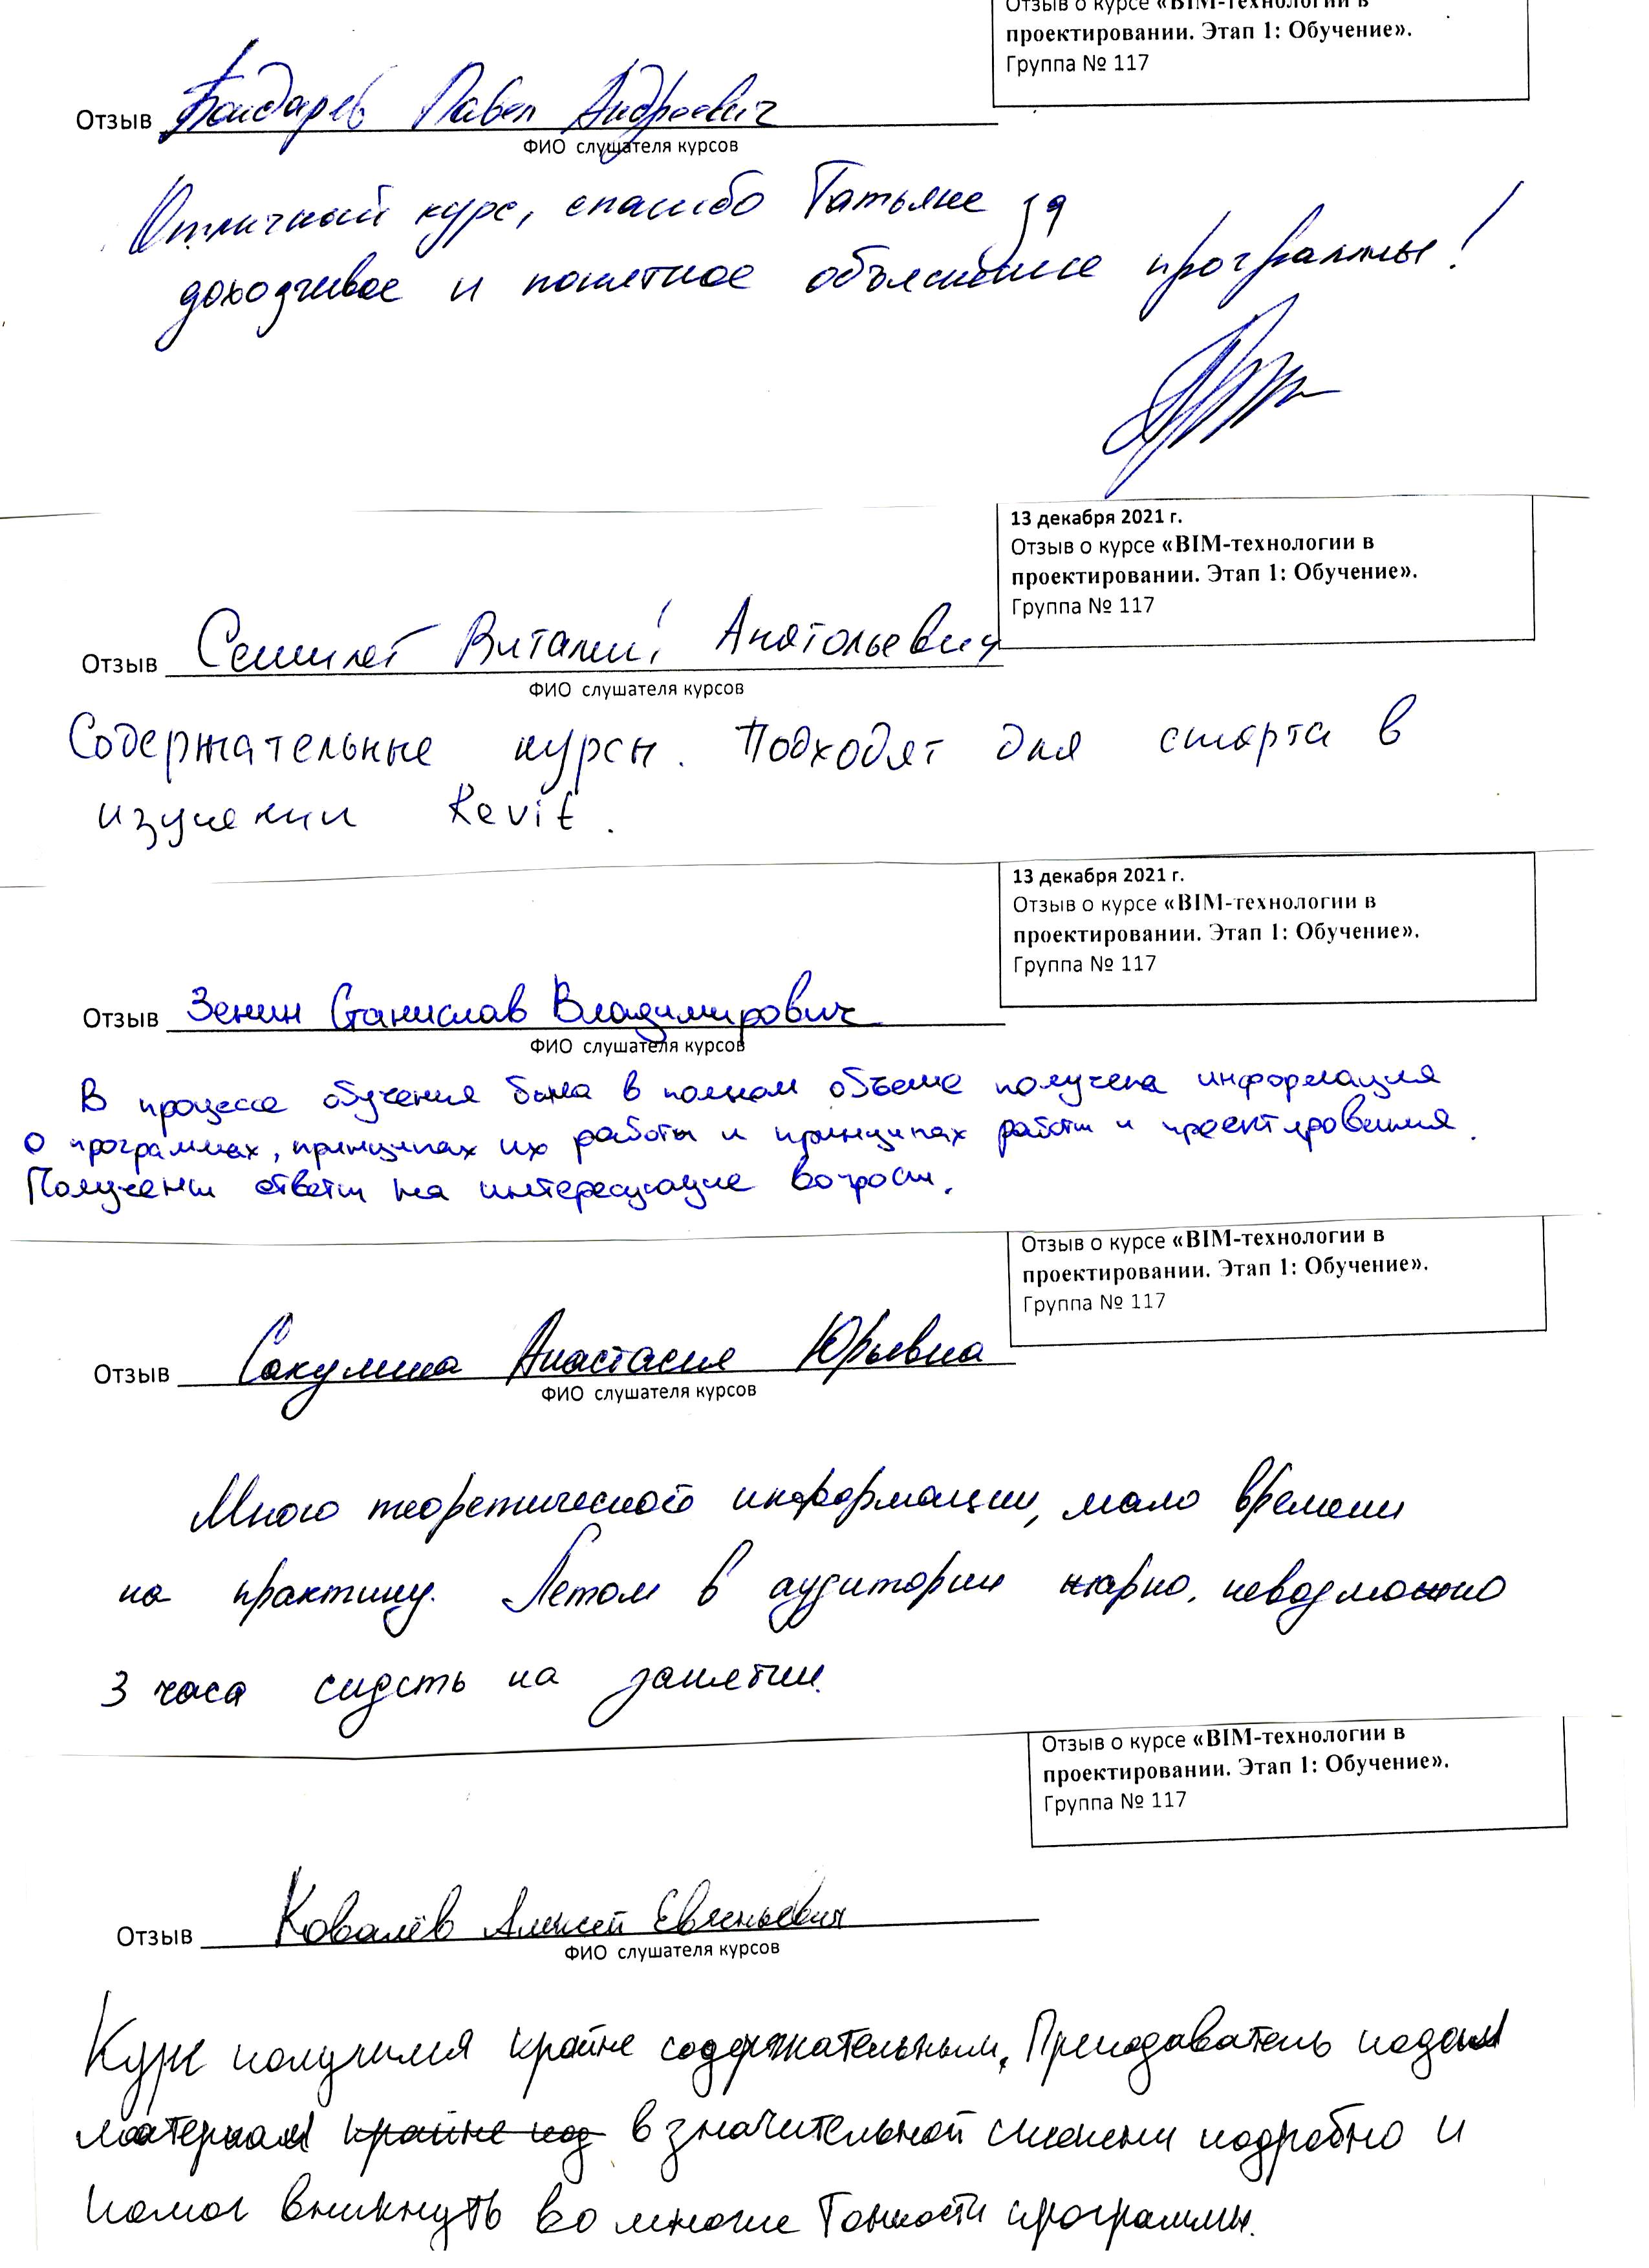 Отзыв о курсе «BIM-технологии в
проектировании. Этап 1: Обучение».
Группа № 117
Отзыв Бондарев Павел Андреевич
ФИО слушателя курсов
Отличный курс, спасибо Татьяне за
доходчивое и понятное объяснение программы!
13 декабря 2021 г.
Отзыв о курсе «BIM-технологии в
проектировании. Этап 1: Обучение».
Группа № 117
Отзыв Виталий Анатольевич
ФИО слушателя курсов
Содержательные курсы. Подходят для старта в
изучении Revit.
13 декабря 2021 г.
Отзыв о курсе «BIM-технологии в
проектировании. Этап 1: Обучение».
Группа № 117
Отзыв Зенин Станислав Владимирович
ФИО слушателя курсов
В процессе обучения была в полном объеме получена информация
о программах, принципах их работы и принципах работы и проектирования.
Получены ответы на интересующие вопросы.
Отзыв о курсе «BIM-технологии в
проектировании. Этап 1: Обучение».
Группа № 117
Отзыв Сакулина Анастасия Юрьевна
ФИО слушателя курсов
Много теоретической информации, мало времени
на практику. Летом в аудитории жарко, невозможно
3 часа сидеть на занятии.
Отзыв о курсе «BIM-технологии в
проектировании. Этап 1: Обучение».
Группа № 117
Отзыв Ковалёв Алексей Евгеньевич
ФИО слушателя курсов
Курс получился крайне содержательным. Преподаватель подал
материал крайне под в значительной степени подробно и
помог вникнуть во многие тонкости программы.